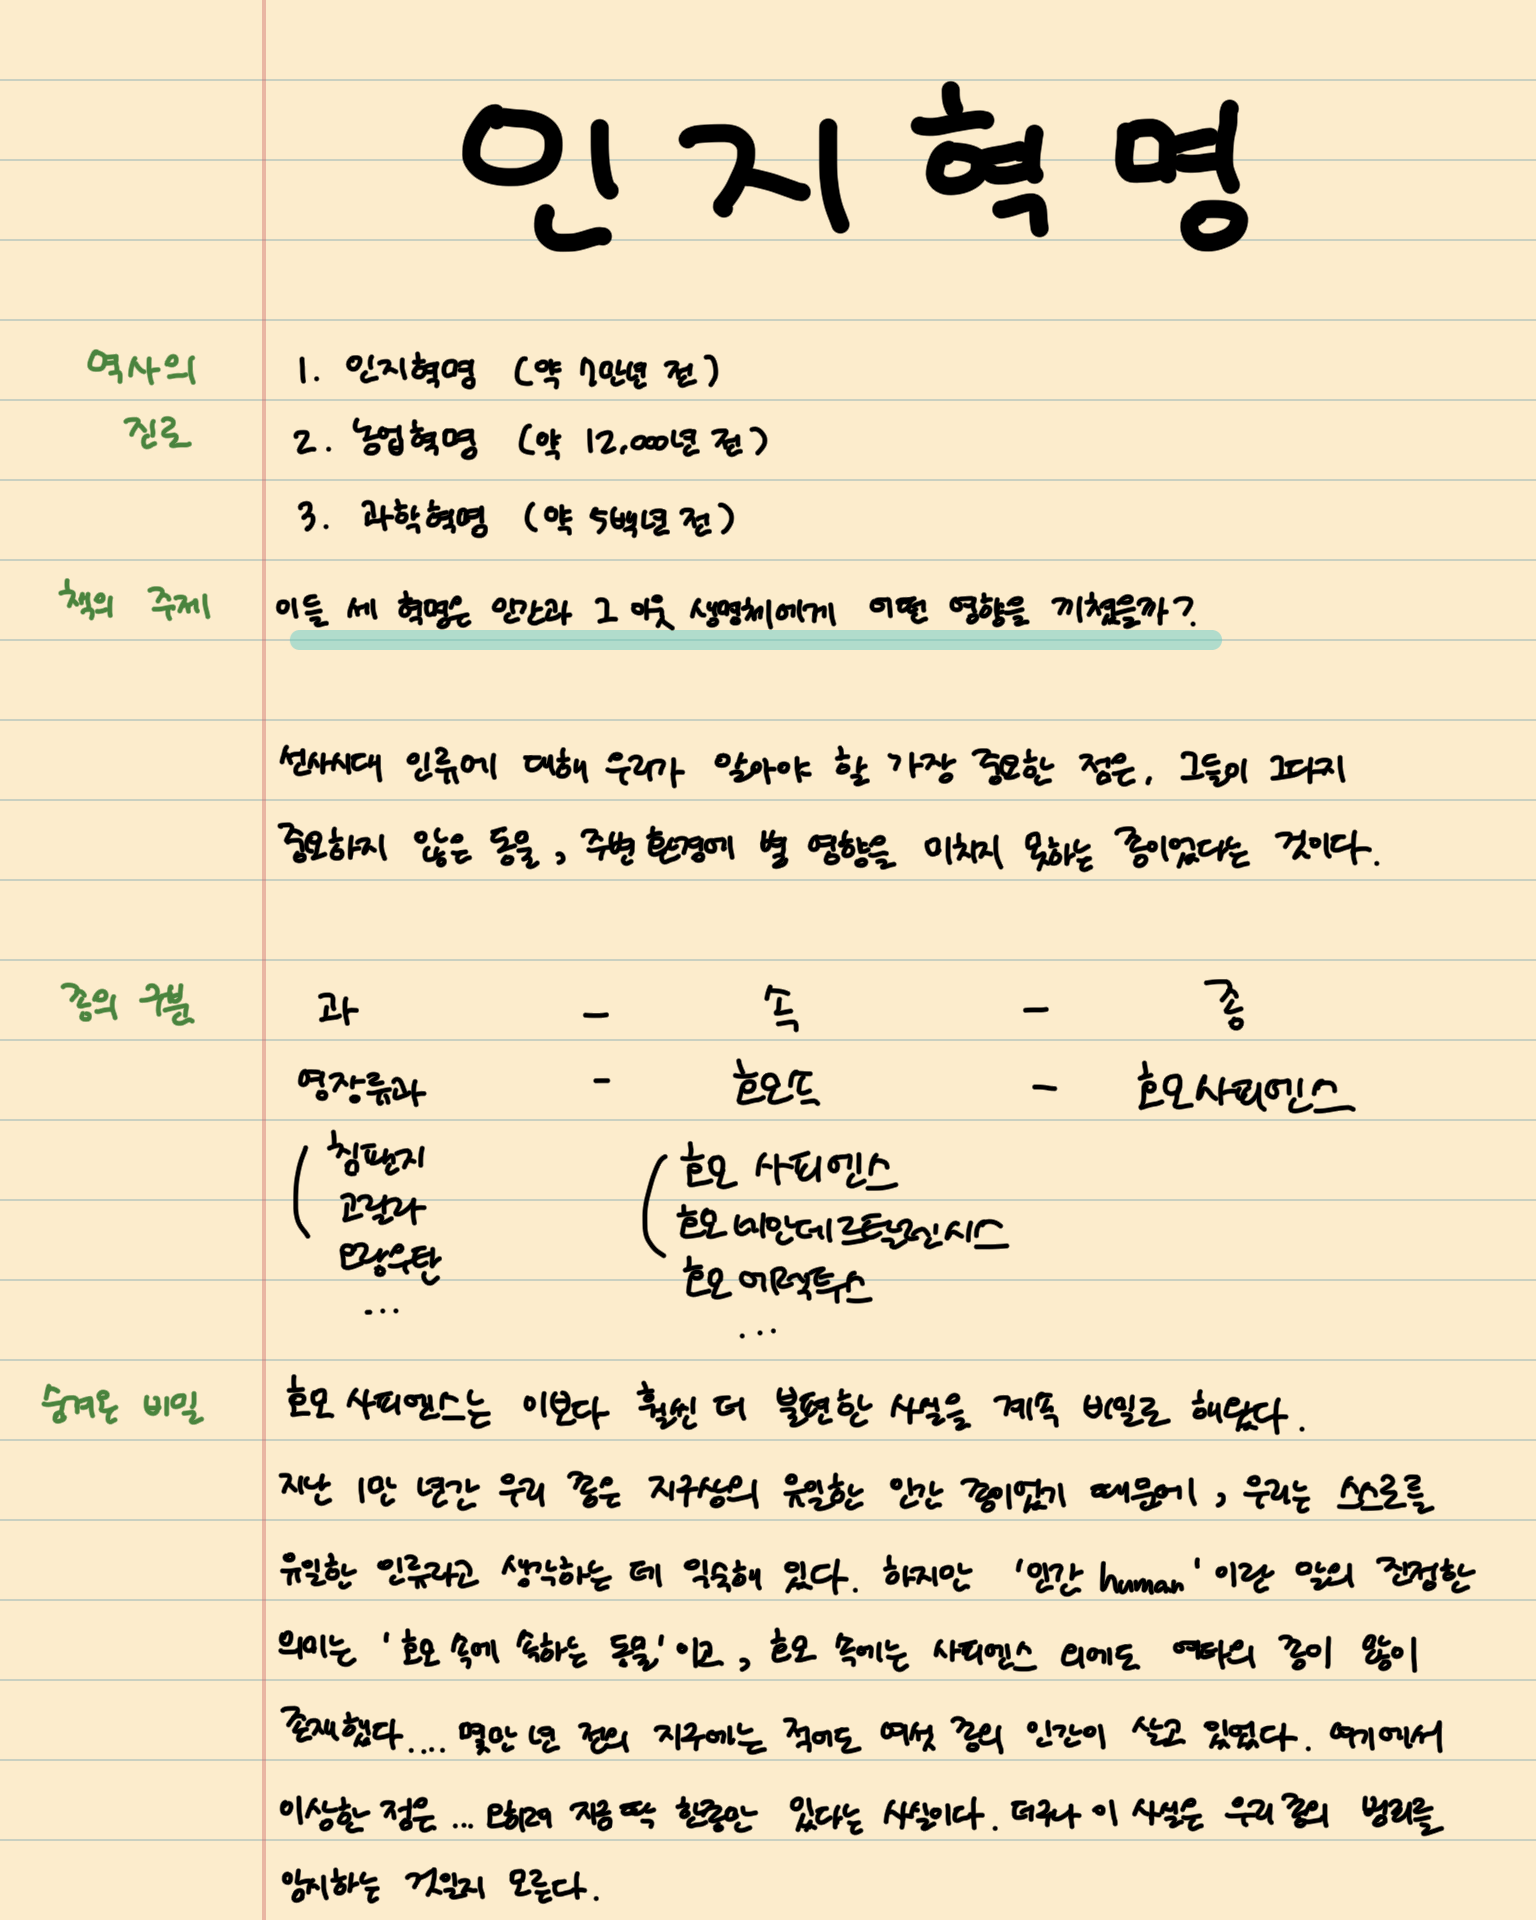 인지혁명
역사의 1. 인지혁명 (약 7만년 전)
진로 2. 농업혁명 (약 12,000년 전)
3. 과학혁명 (약 5백년 전)
책의 주제 이들 세 혁명은 인간과 그 이웃 생명체에게 어떤 영향을 끼쳤을까?
선사시대 인류에 대해 우리가 알아야 할 가장 중요한 점은, 그들이 그다지
중요하지 않은 동물, 주변 환경에 별 영향을 미치지 못하는 종이었다는 것이다.
종의 구분 과 - 속 - 종
영장류과 - 호모속 - 호모사피엔스
( 침팬지 ( 호모 사피엔스
고릴라 호모 네안데르탈렌시스
오랑우탄 호모 에렉투스
... ...
숨겨온 비밀 호모 사피엔스는 이보다 훨씬 더 불편한 사실을 계속 비밀로 해왔다.
지난 1만 년간 우리 종은 지구상의 유일한 인간 종이었기 때문에, 우리는 스스로를
유일한 인류라고 생각하는 데 익숙해 있다. 하지만 '인간 human'이란 말의 진정한
의미는 '호모 속에 속하는 동물'이고, 호모 속에는 사피엔스 외에도 여타의 종이 많이
존재했다.... 몇만 년 전의 지구에는 적어도 여섯 종의 인간이 살고 있었다. 여기에서
이상한 점은 ... 오히려 지금 딱 한종만 있다는 사실이다. 더구나 이 사실은 우리 종의 범죄를
암시하는 것일지 모른다.